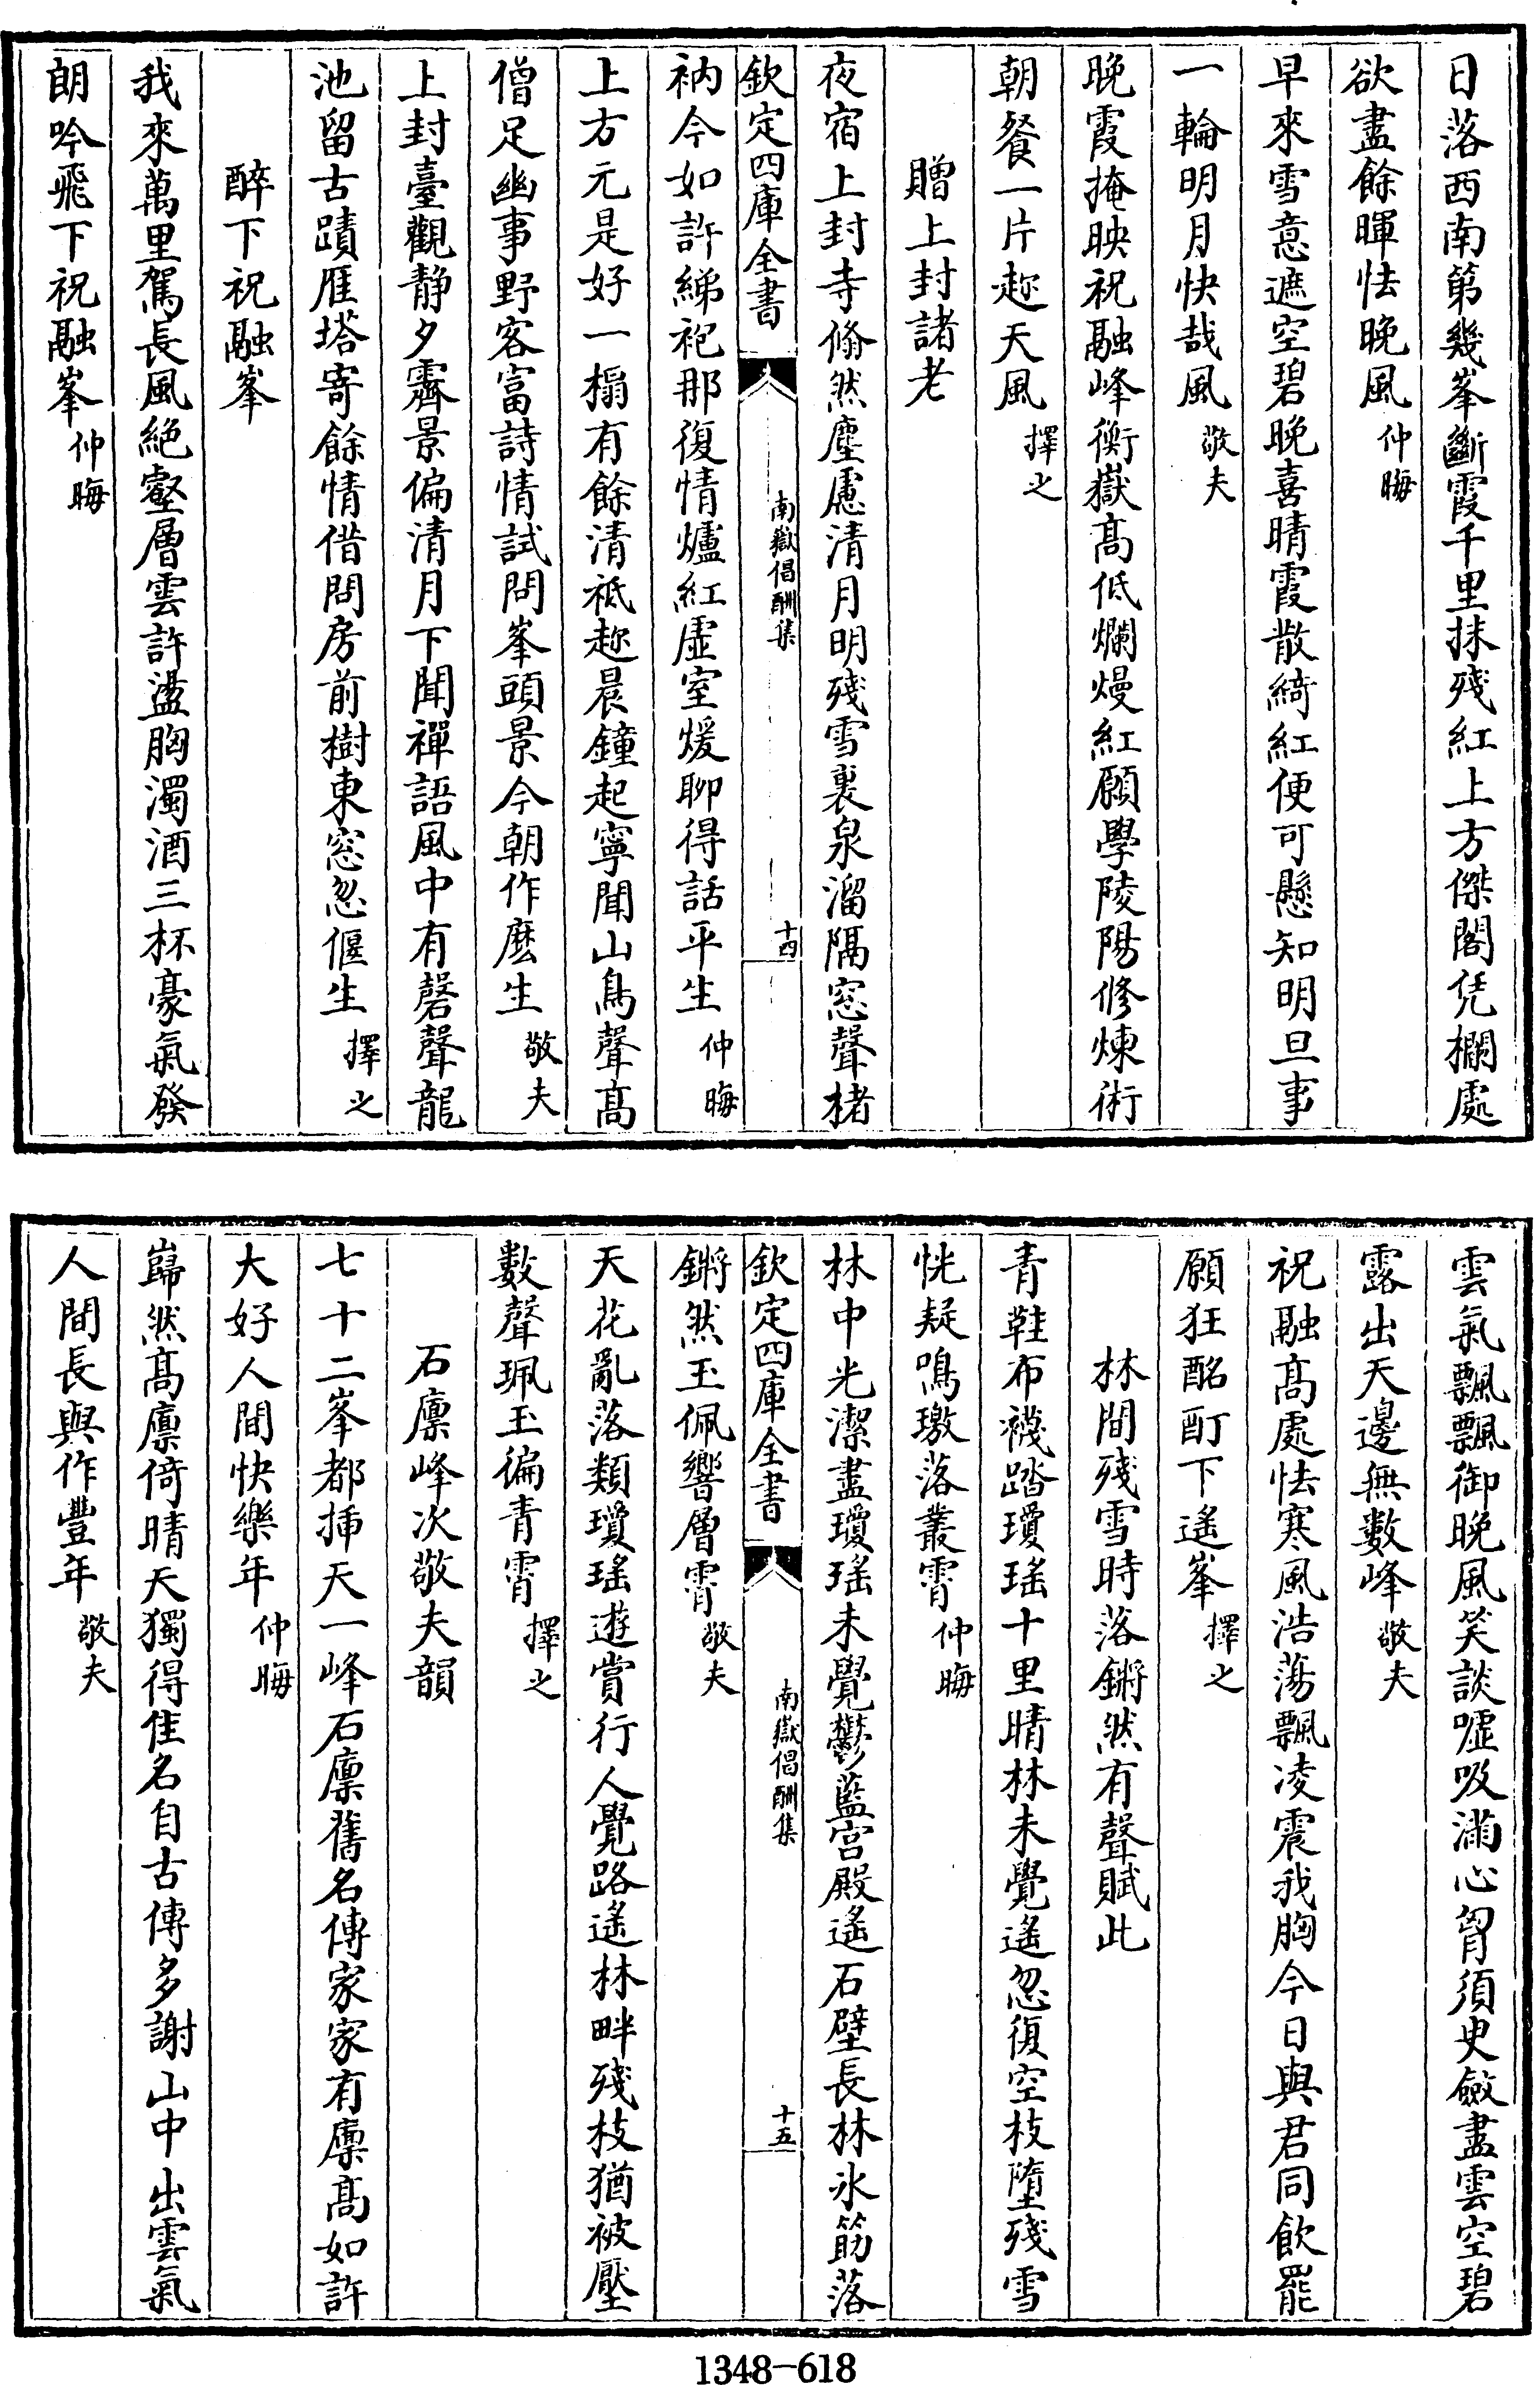 日落西南第幾峯斷霞千里抹殘紅上方傑閣凭欄處
欲盡餘暉怯晚風仲晦
早來雪意遮空碧晚喜晴霞散綺紅便可懸知明旦事
一輪明月快哉風敬夫
晚霞掩映祝融峰衡嶽髙低爛熳紅願學陵陽修煉術
朝餐一片趂天風擇之
贈上封諸老
夜宿上封寺翛然塵慮清月明殘雪裏泉溜隔窓聲楮
欽定四庫全書
南嶽倡酬集
十四
衲今如許綈袍那復情爐紅虛室煖聊得話平生仲晦
上方元是好一榻有餘清祗趂晨鐘起寧聞山鳥聲髙
僧足幽事野客富詩情試問峯頭景今朝作麽生敬夫
上封臺觀静夕霽景偏清月下聞禪語風中有磬聲龍
池留古蹟雁塔寄餘情借問房前樹東窓忽偃生擇之
醉下祝融峯
我來萬里駕長風絶壑層雲許盪胸濁酒三杯豪氣發
朗吟飛下祝融峯仲晦
雲氣飄飄御晚風笑談嘘吸滿心胷須臾斂盡雲空碧
露出天邊無數峰敬夫
祝融髙處怯寒風浩蕩飄凌震我胸今日與君同飲罷
願狂酩酊下遙峯擇之
林間殘雪時落鏘然有聲賦此
青鞋布襪踏瓊瑤十里晴林未覺遙忽復空枝墮殘雪
恍疑鳴璈落叢霄仲晦
林中光潔盡瓊瑤未覺鬱藍宫殿遙石壁長林氷筯落
欽定四庫全書
南嶽倡酬集
十五
鏘然玉佩響層霄敬夫
天花亂落類瓊瑤遊賞行人覺路遙林畔殘枝猶被壓
數聲珮玉徧青霄擇之
石廪峰次敬夫韻
七十二峯都揷天一峰石廪舊名傳家家有廪髙如許
大好人間快樂年仲晦
巋然髙廪倚晴天獨得佳名自古傳多謝山中出雲氣
人間長與作豐年敬夫
1348-618